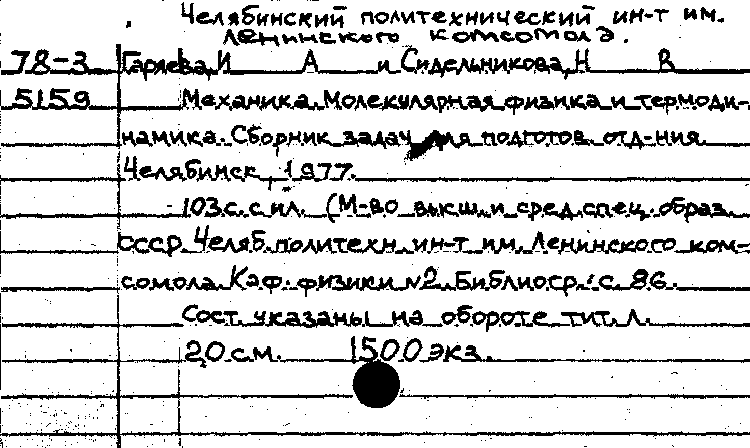 Челябинский политехнический ин-т им.
Ленинского комсомола.
78-3 Гаряева, И А и Сидельникова, Н В
5159 Механика. Молекулярная физика и термоди-
намика. Сборник задач для подготов. отд-ния.
Челябинск, 1977.
103 с. с ил. (М-во высш. и сред. спец. образ.
СССР. Челяб. политехн. ин-т им. Ленинского ком-
сомола. Каф. физики №2. Библиогр.: с. 86.
Сост. указаны на обороте тит. л.
20 см. 1500 экз.